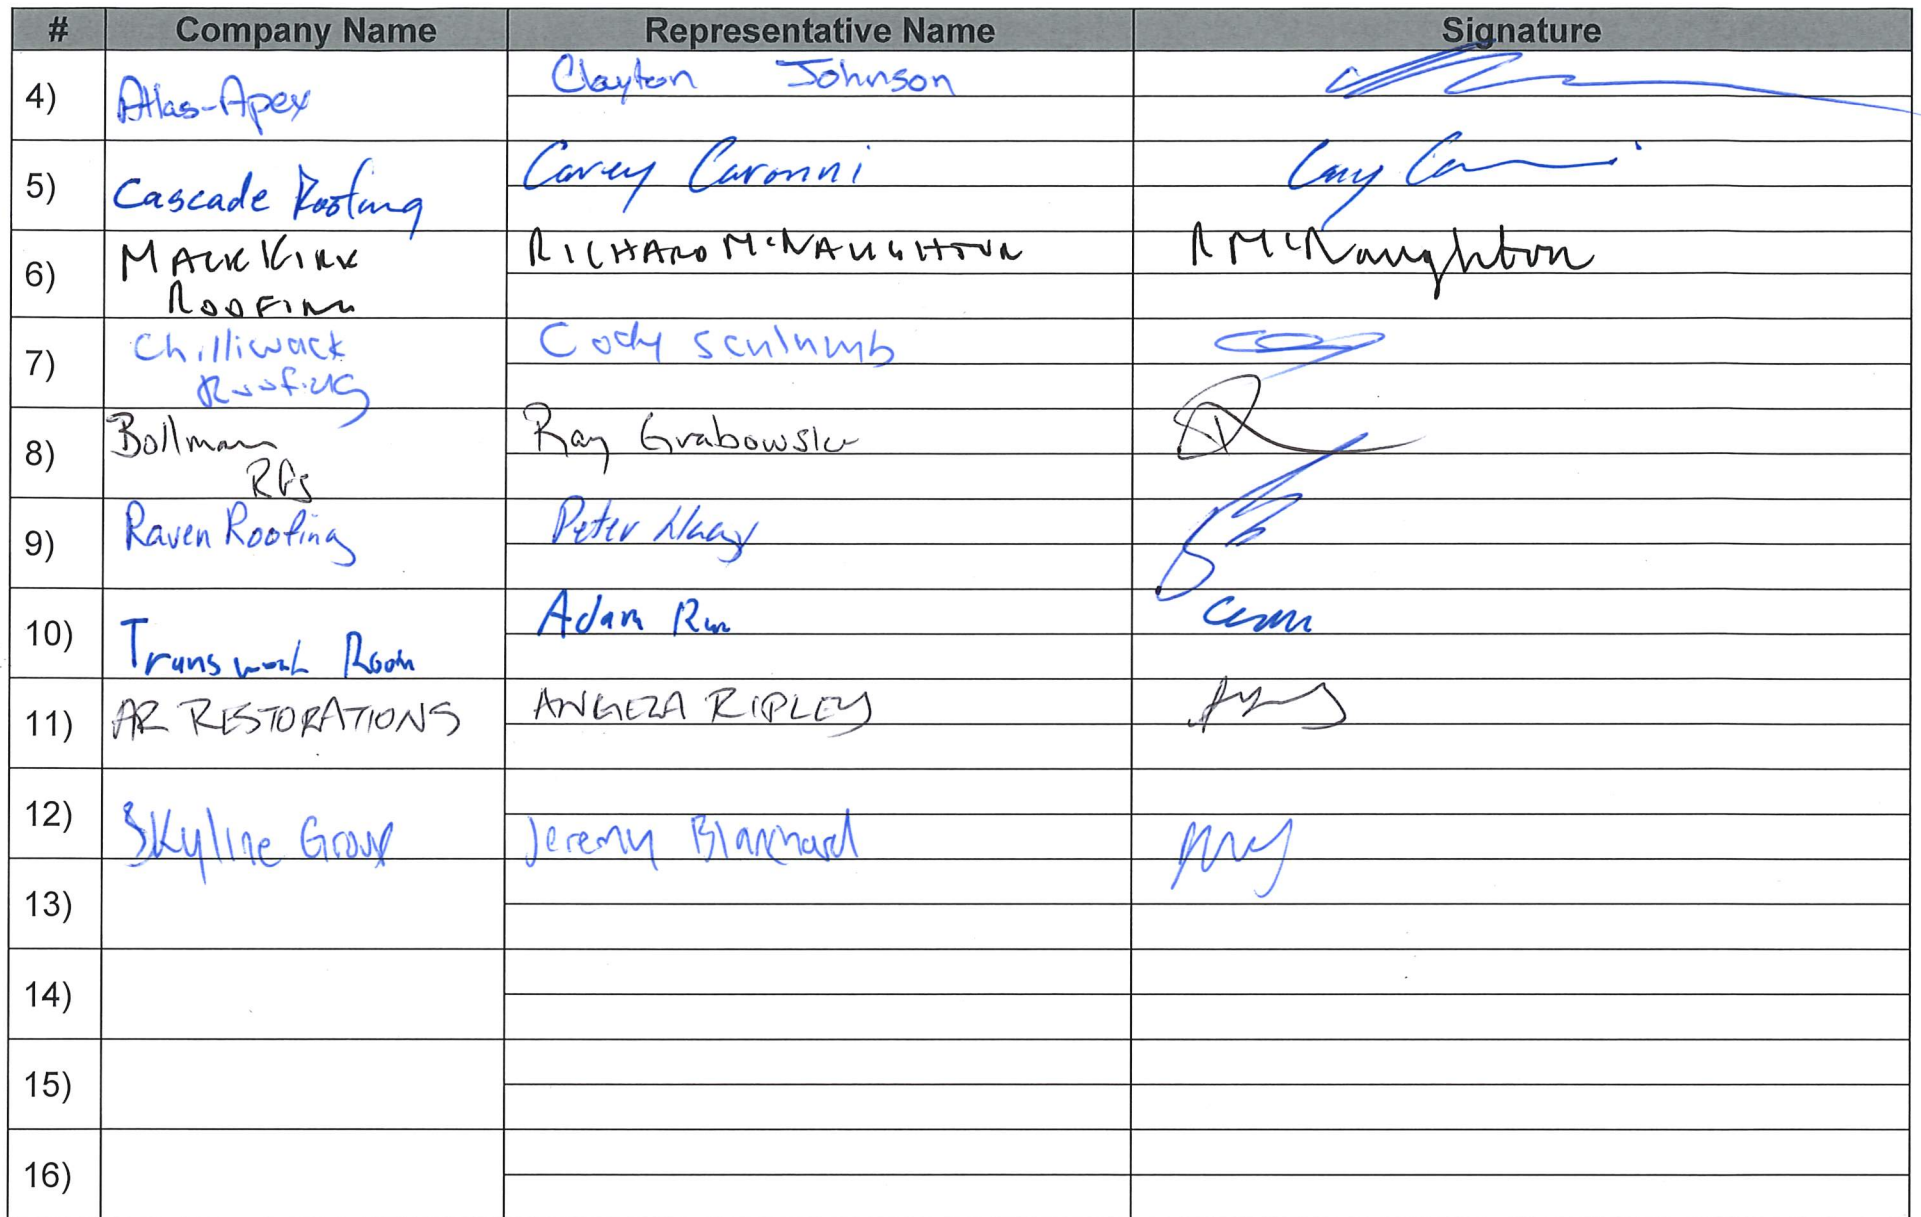 # Company Name Representative Name Signature
4) Atlas-Apex Clayton Johnson
5) Cascade Roofing Carey Caronni
6) MACK KIRK ROOFING RICHARD MCNAUGHTON RMCNaughton
7) Chilliwack Roofing Cody
8) Bollman Rfg Ray Grabowski
9) Raven Roofing Peter
10) Adam
11) AR RESTORATIONS ANGELA RIPLEY
12) Skyline Group Jeremy Blanchard
13)
14)
15)
16)